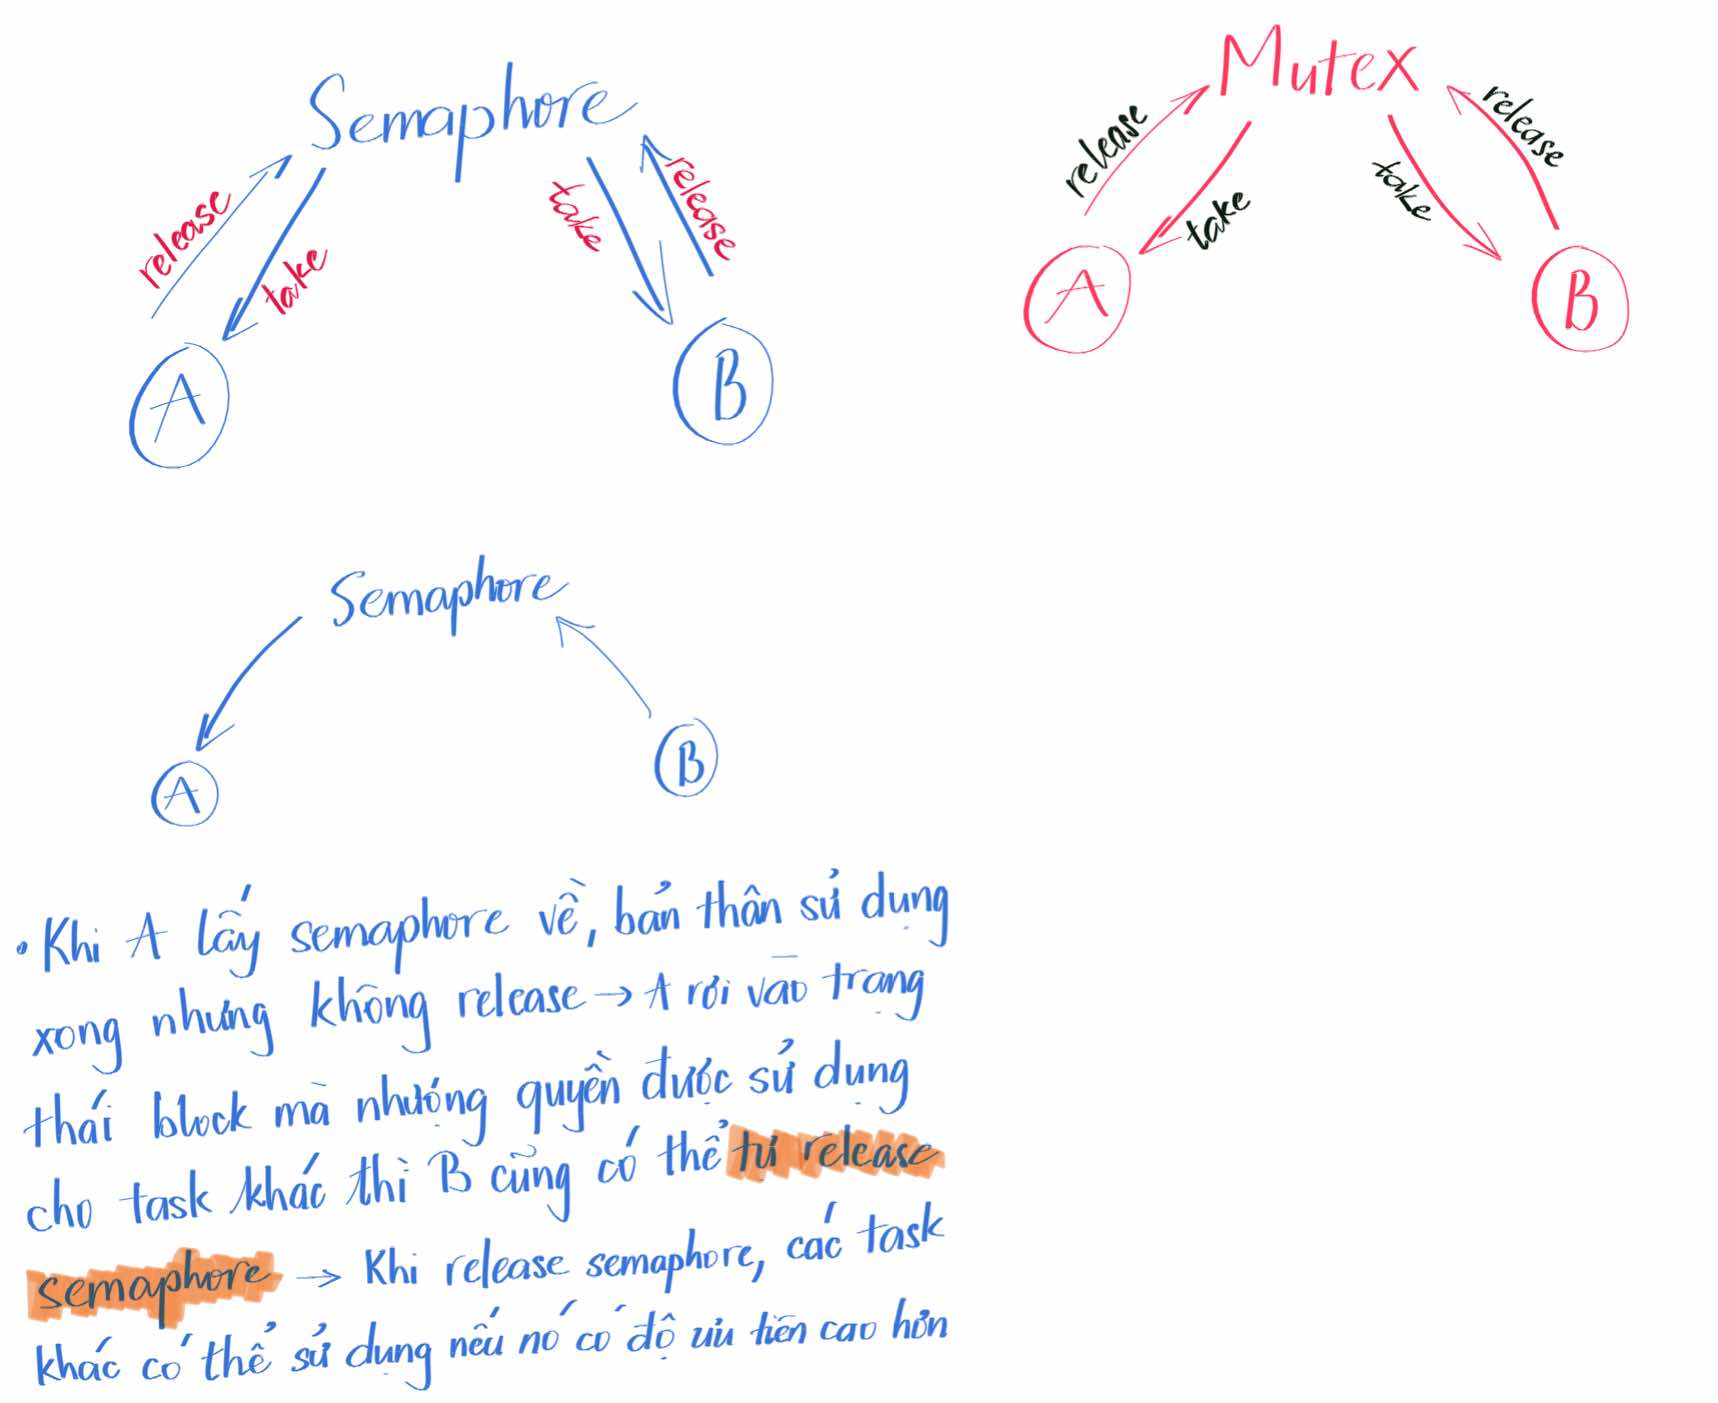 Semaphore
release
take
take
release
A
B
Mutex
release
take
take
release
A
B
Semaphore
A
B
• Khi A lấy semaphore về, bản thân sử dụng
xong nhưng không release → A rơi vào trạng
thái block mà nhường quyền được sử dụng
cho task khác thì B cũng có thể tự release
semaphore → Khi release semaphore, các task
khác có thể sử dụng nếu nó có độ ưu tiên cao hơn